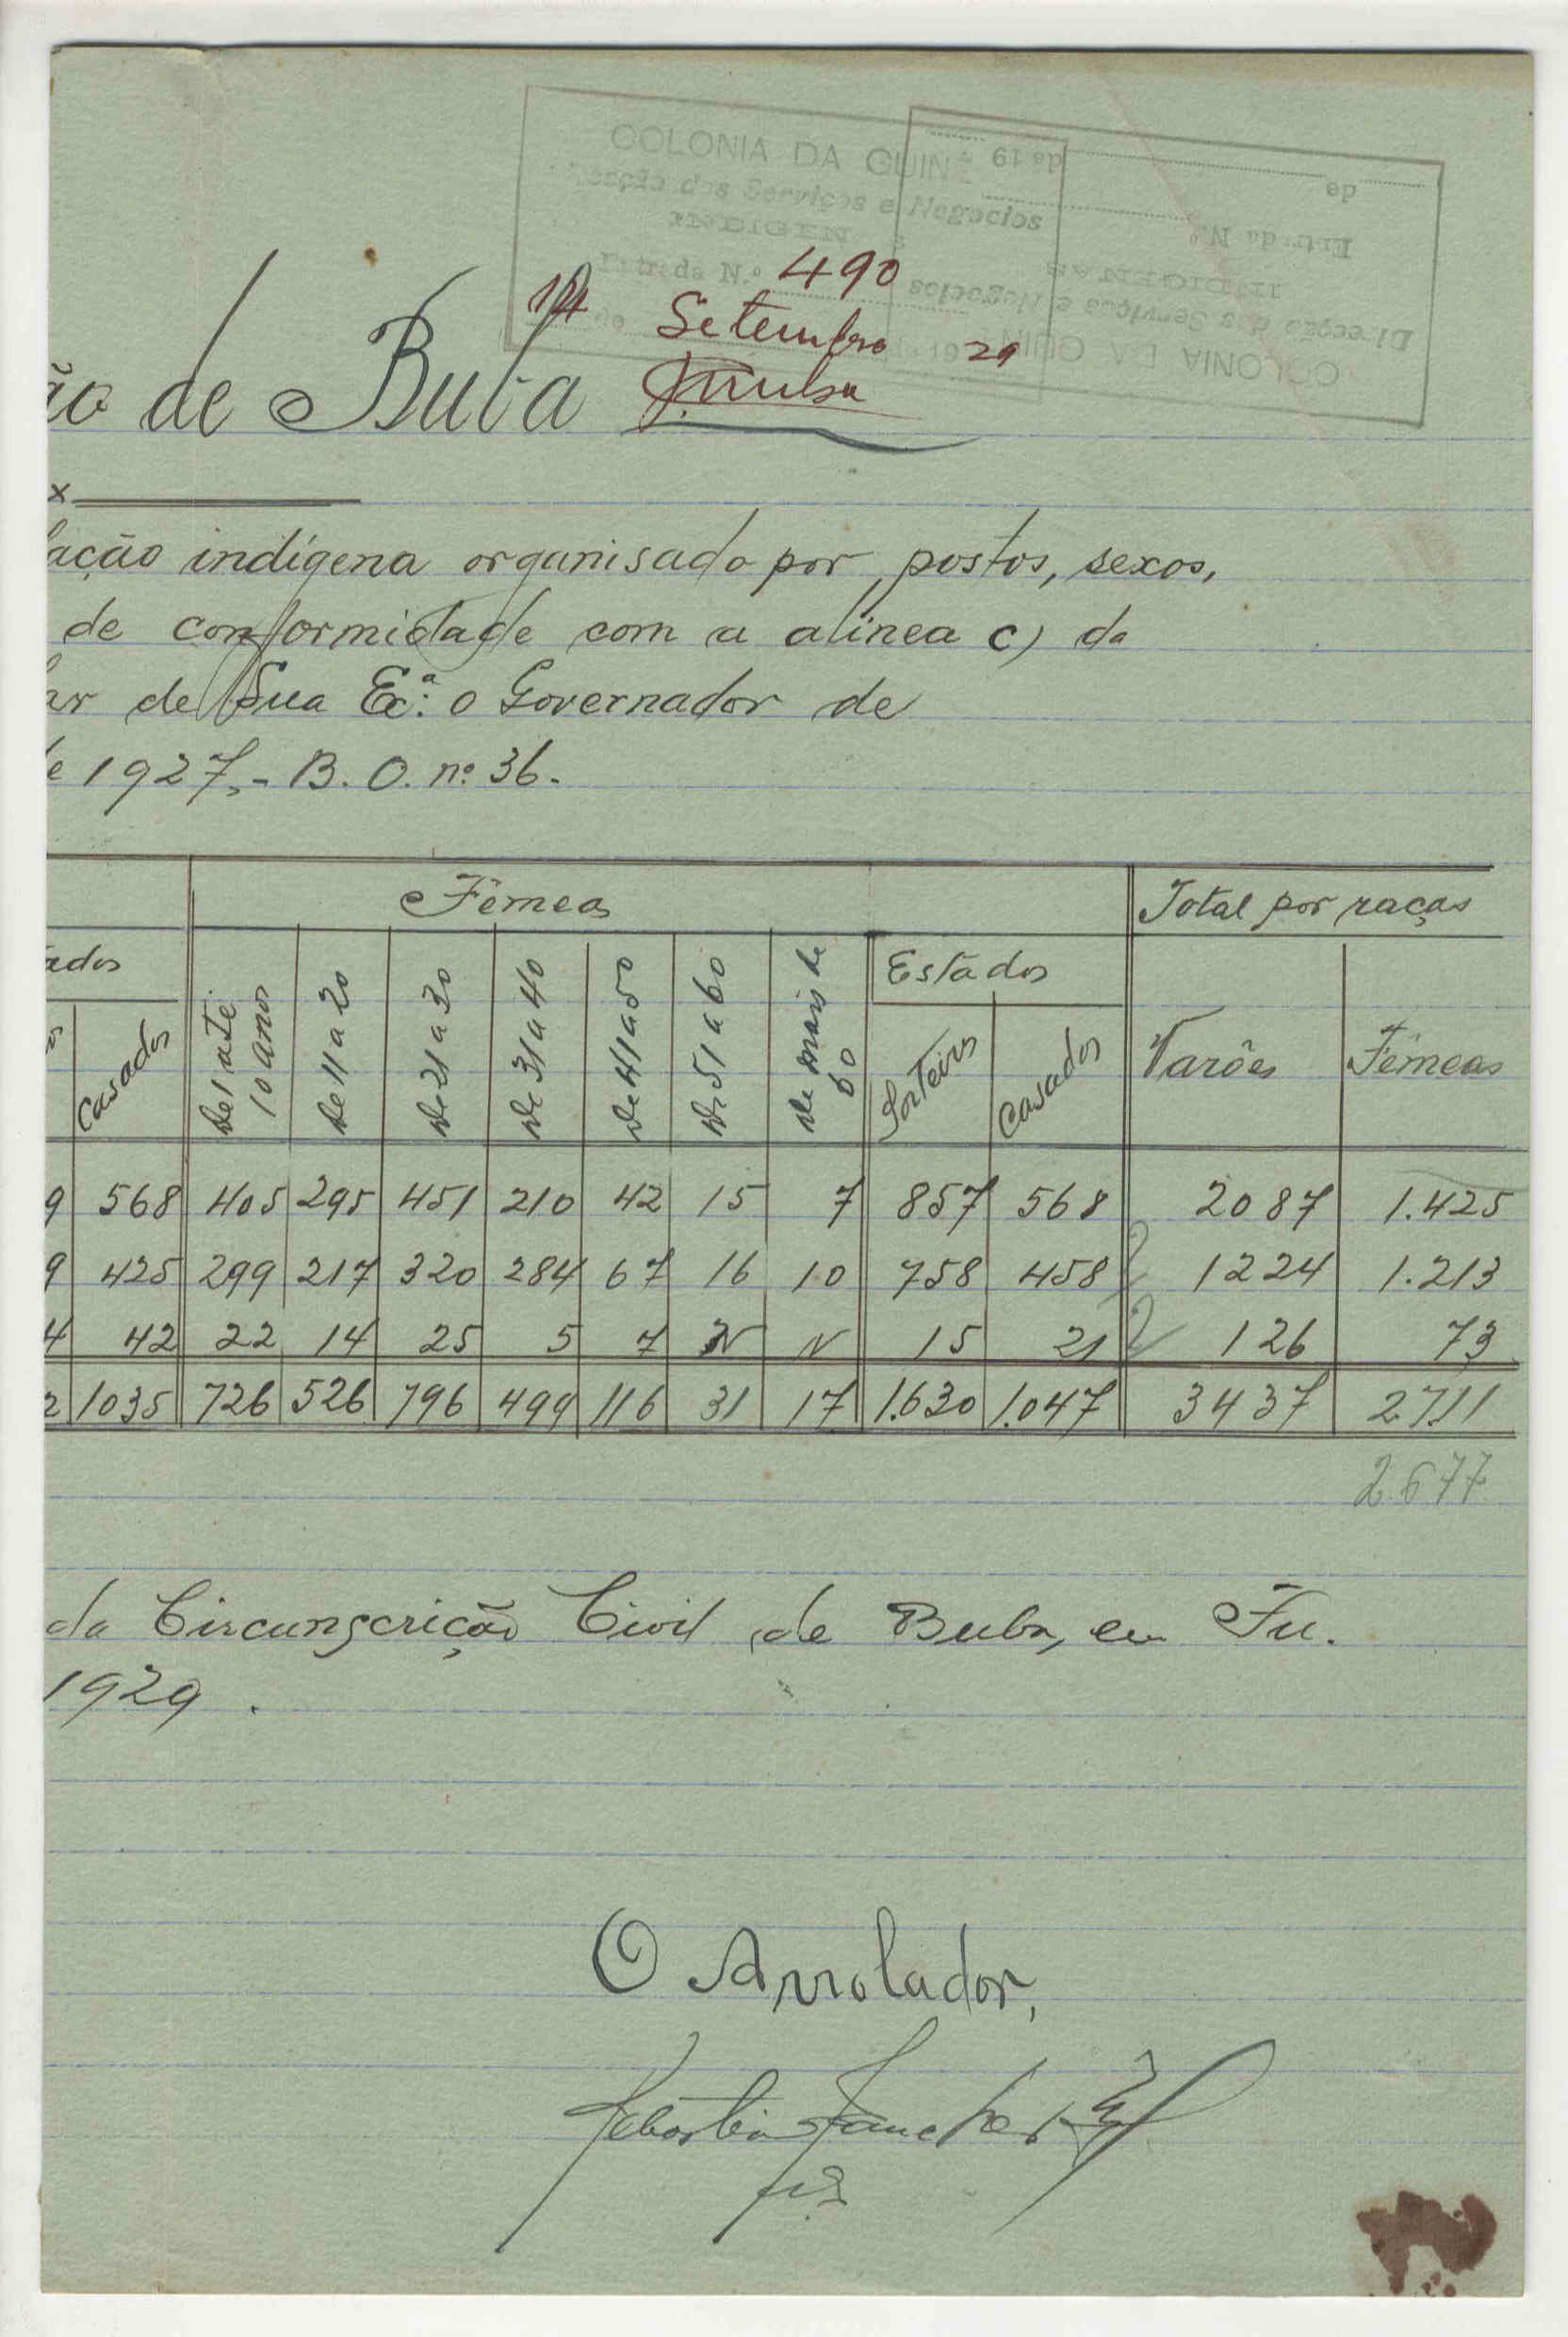 COLONIA DA GUINÉ
Serviços e Negocios
INDIGENAS
Entrada N.º 490
14 Setembro 29
COLONIA DA GUINÉ
Direcção dos Serviços e Negocios
INDIGENAS
Entrada Nº
de de 19
ão de Buba
x
lação indígena organisado por, postos, sexos,
de conformidade com a alinea c) da
ar de Sua Ex.ª o Governador de
de 1927, - B. O. nº 36.
Fêmeas Total por raças
ados De 1 até 10 anos De 11 a 20 De 21 a 30 De 31 a 40 De 41 a 50 De 51 a 60 De mais de 60 Estados Varões Fêmeas
os Casados Solteiros Casados
9 568 405 295 451 210 42 15 7 857 568 2087 1.425
9 425 299 217 320 284 67 16 10 758 458 1224 1.213
4 42 22 14 25 5 7 N N 15 21 126 73
2 1035 726 526 796 499 116 31 17 1.630 1.047 3437 2711
2677
da Circunscrição Civil de Buba, em Fu.
1929.
O Arrolador,